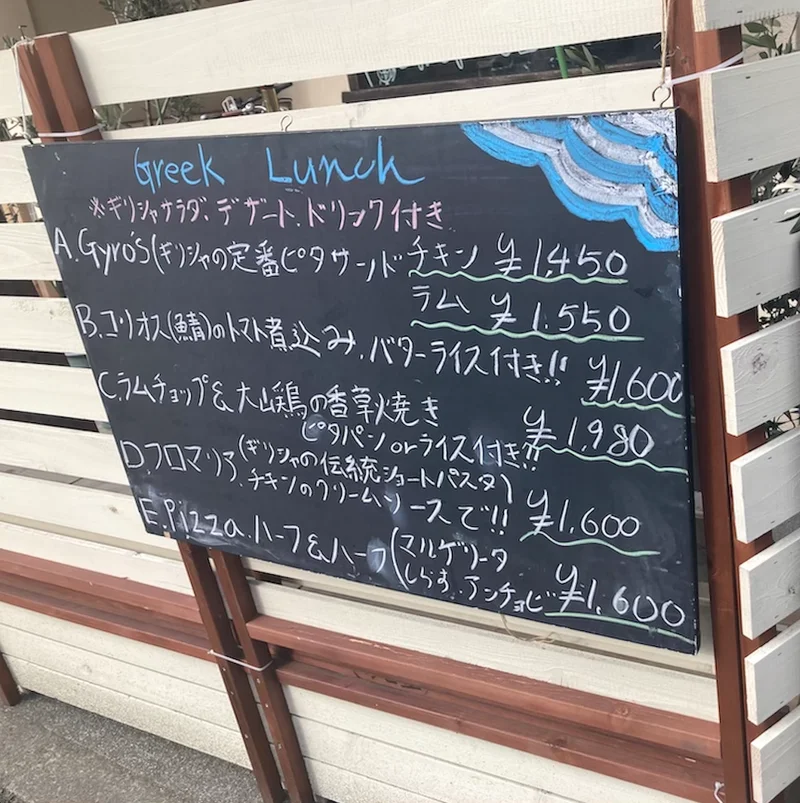 Greek Lunch
※ギリシャサラダ、デザート、ドリンク付き
A.Gyro's(ギリシャの定番ピタサンド チキン ¥1,450
ラム ¥1.550
B.コリオス(鯖)のトマト煮込み.バターライス付き!! ¥1,600
C.ラムチョップ&大山鶏の香草焼き
ピタパンorライス付き!! ¥1,980
D.フロマリア(ギリシャの伝統ショートパスタ)
チキンのクリームソースで!! ¥1,600
E.Pizza.ハーフ&ハーフ(マルゲリータ
しらす.アンチョビ ¥1,600